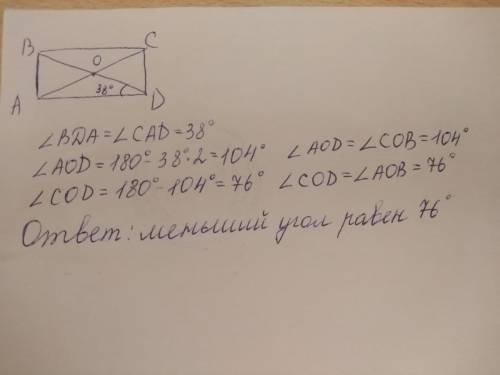 B C
O
38°
A D
∠BDA = ∠CAD = 38°
∠AOD = 180° - 38° · 2 = 104° ∠AOD = ∠COB = 104°
∠COD = 180° - 104° = 76° ∠COD = ∠AOB = 76°
Ответ: меньший угол равен 76°